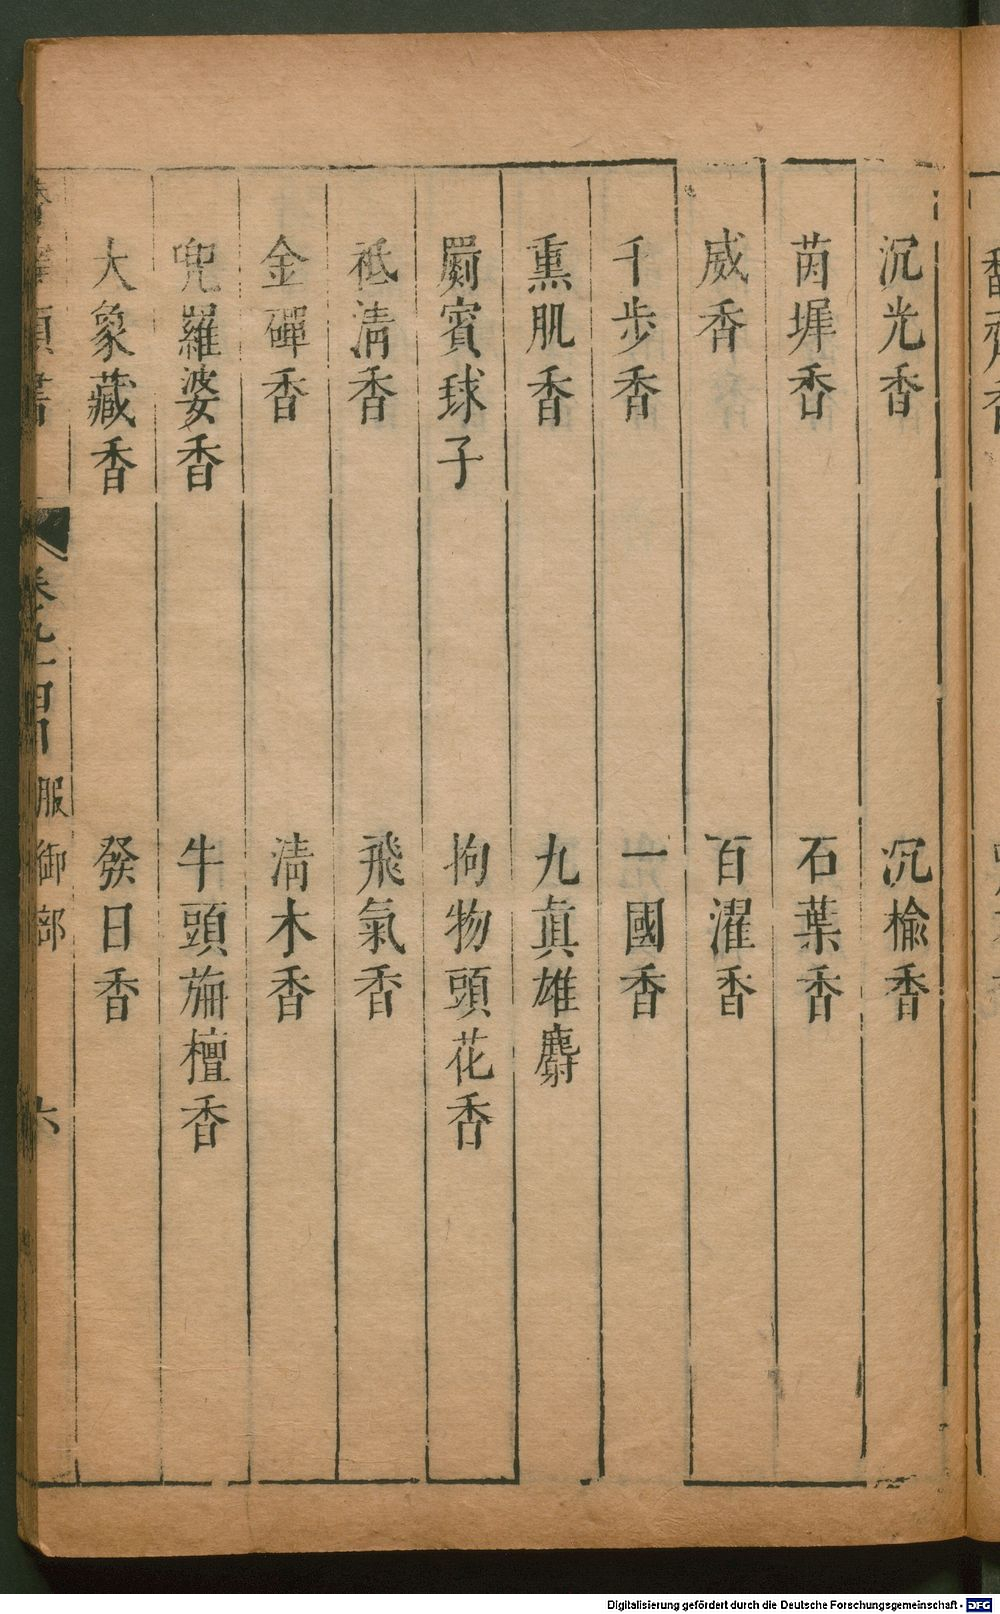 沉光香 沉榆香
茵墀香 石葉香
威香 百濯香
千步香 一國香
熏肌香 九真雄麝
罽賓球子 拘物頭花香
祗清香 飛氣香
金磾香 清木香
兜羅婆香 牛頭旃檀香
大象藏香 發日香
服御部 六
Digitalisierung gefördert durch die Deutsche Forschungsgemeinschaft - DFG